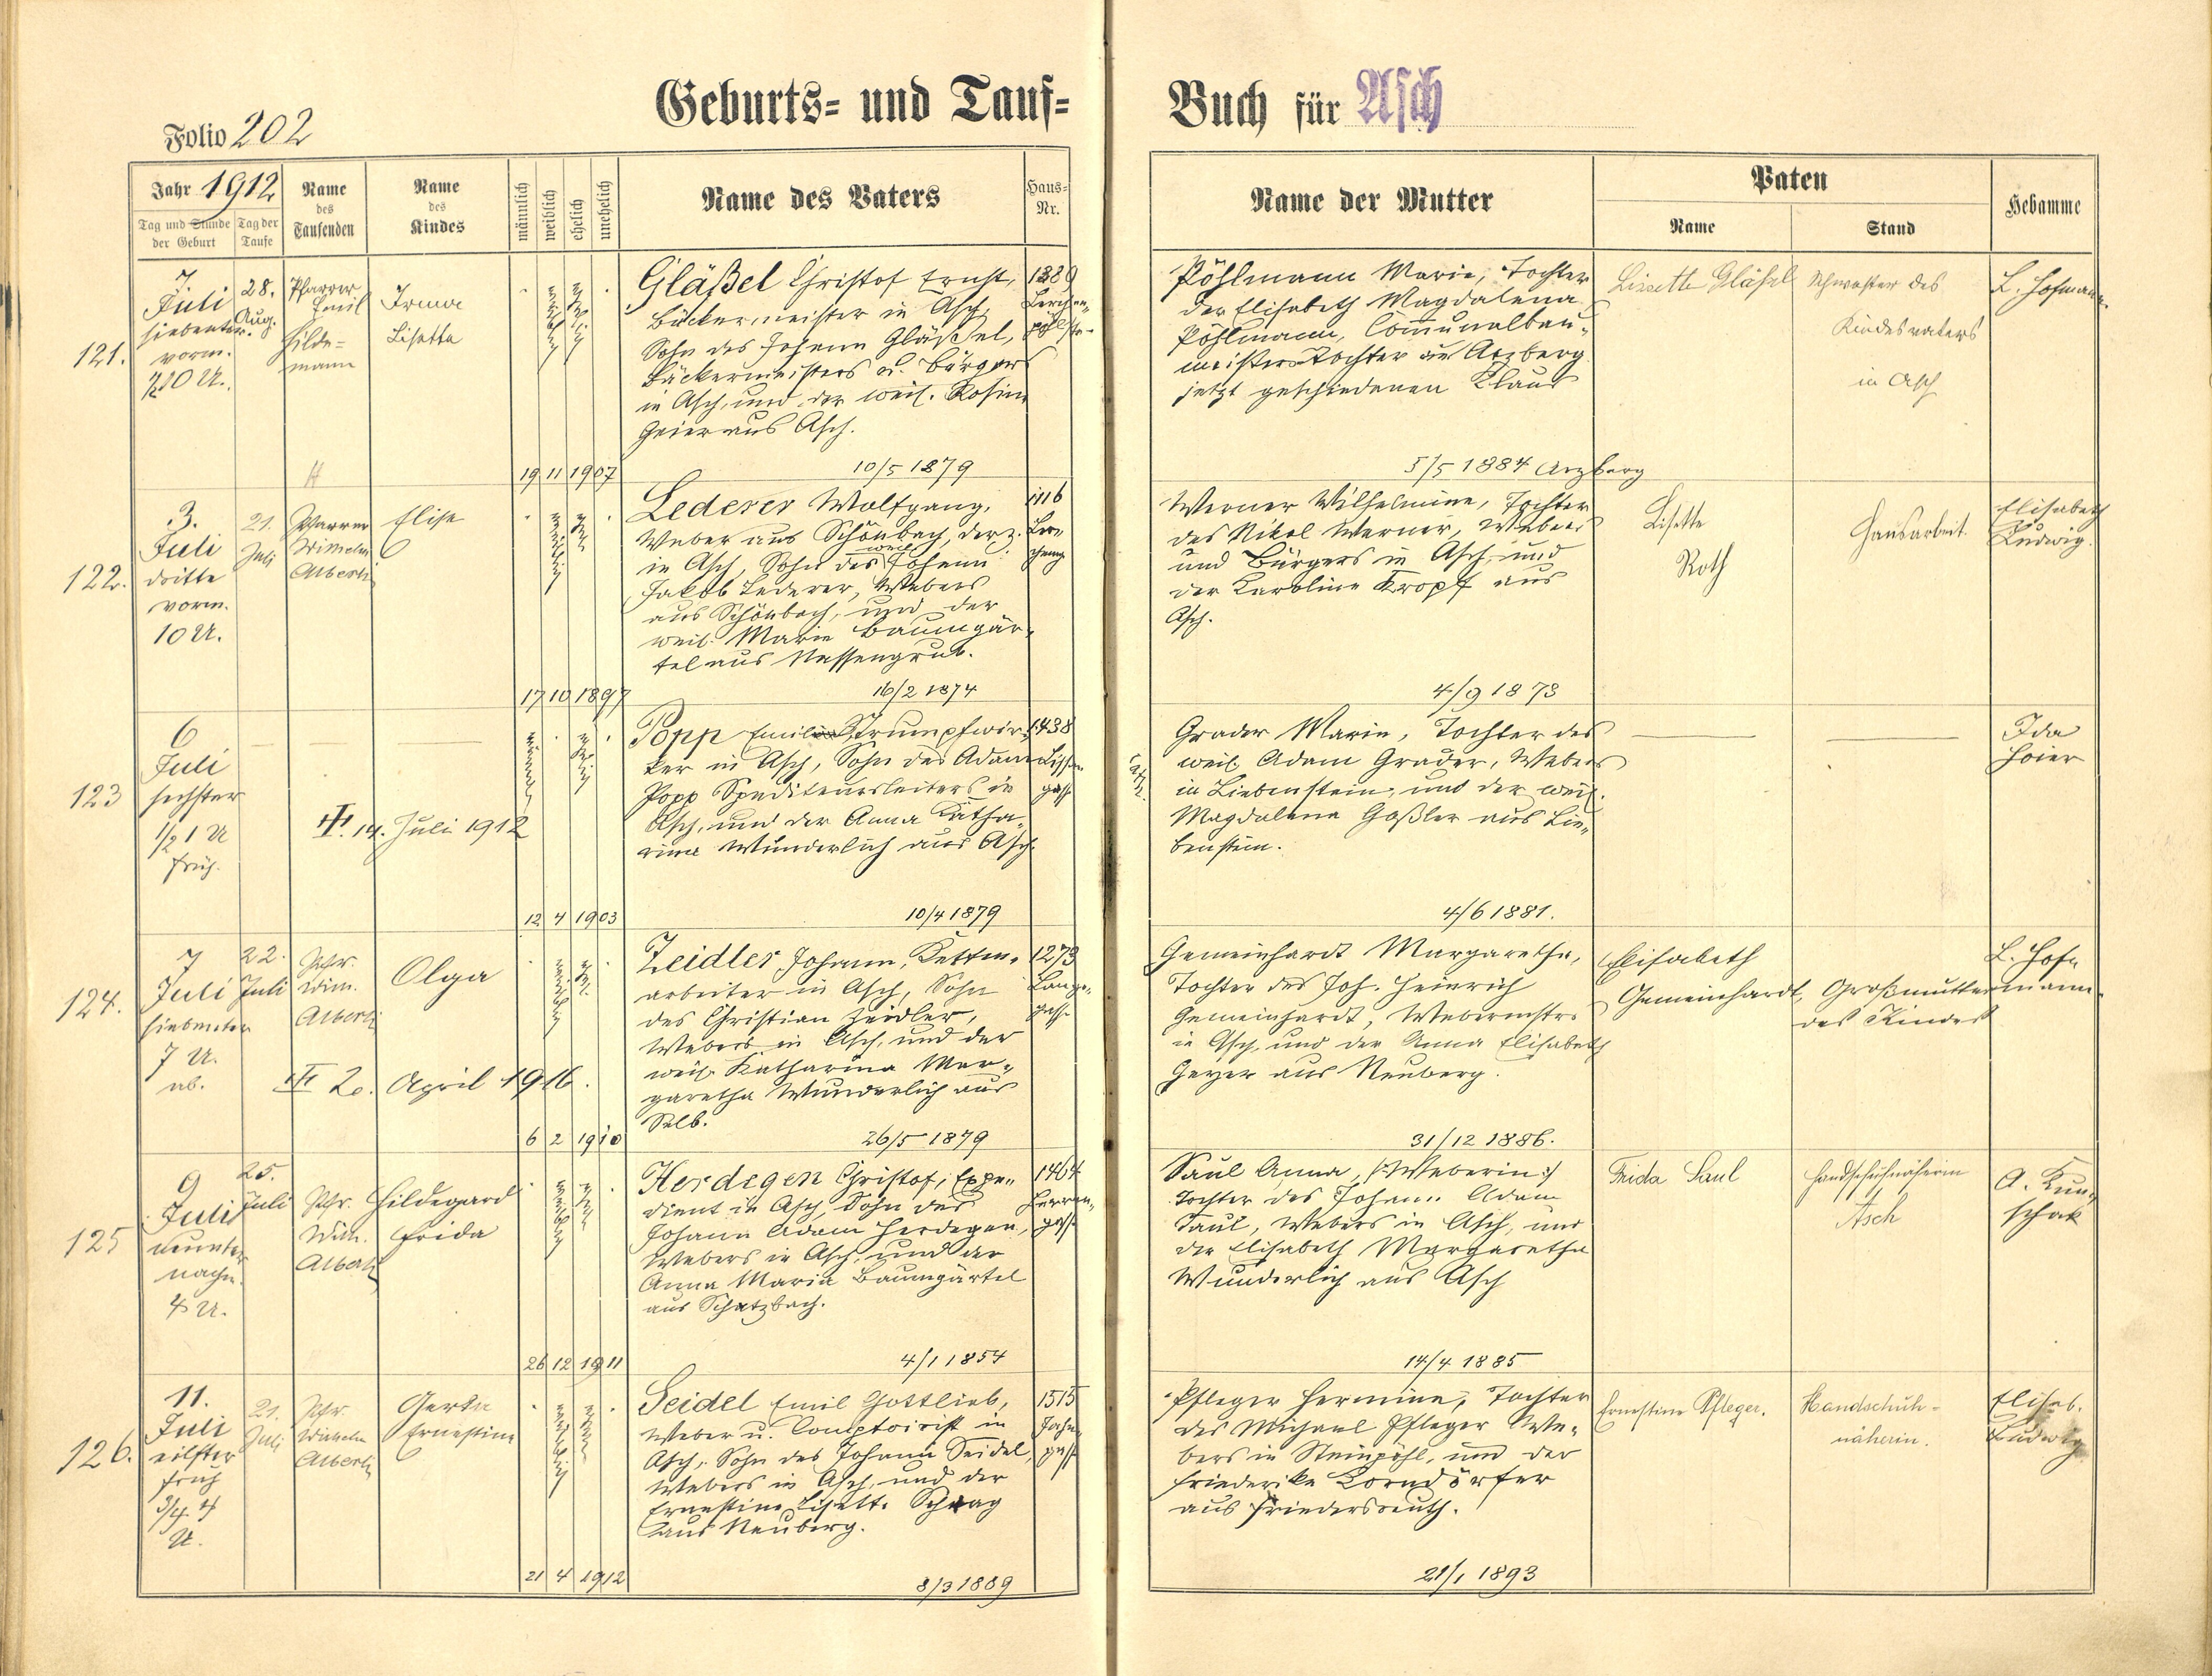 Geburts- und Tauf-
Buch für Asch
Folio 202
Jahr 1912
Tag und Stunde der Geburt
Tag der Taufe
Name des Taufenden
Name des Kindes
männlich
weiblich
ehelich
unehelich
Name des Vaters
Haus-Nr.
Name der Mutter
Paten
Name
Stand
Hebamme
121.
7.
Juli
siebenter
vorm.
½10 U.
28.
Aug.
Pfarrer
Emil
Hilde-
mann
Irma
Lisetta
19 11 1907
Gläßel Christof Ernst,
Bäckermeister in Asch,
Sohn des Johann Gläßel,
Bäckermeisters u. Bürgers
in Asch, und der weil. Rosina
Geier aus Asch.
10/5 1879
1389
Pöhlmann Maria, Tochter
der Elisabeth Magdalena
Pöhlmann, Communalbau-
meisterstochter in Arzberg
jetzt geschiedenen Klaus
5/5 1884 Arzberg
Lisette Gläßel
Schwester des
Kindesvaters
in Asch
L. Hofmann
122.
3.
Juli
dritte
vorm.
10 U.
21.
Juli
Pfarrer
Wilhelm
Alberti
Elise
17 10 1897
Lederer Wolfgang,
Weber aus Schönbach, derz.
in Asch, Sohn des weil. Johann
Jakob Lederer, Webers
aus Schönbach, und der
weil. Marie Baumgär-
tel aus Nassengrub.
16/2 1874
1116
Werner Wilhelmine, Tochter
des Nikol Werner, Webers
und Bürgers in Asch, und
der Karoline Kropf aus
Asch.
4/9 1873
Lisette
Roth
Hausarbeit.
Elisabeth
Ludwig.
123
6
Juli
sechster
½1 U
früh.
14. Juli 1912
12 4 1903
Popp Emil Strumpfwir-
ker in Asch, Sohn des Adam
Popp Spediteursleiters in
Asch, und der Anna Katha-
rina Wunderlich aus Asch.
10/4 1879
1438
Grader Marie, Tochter des
weil. Adam Grader, Webers
in Liebenstein, und der weil.
Magdalena Goßler aus Lie-
benstein.
4/6 1881.
Ida
Hoier
124.
7
Juli
siebenter
7 U.
ab.
22.
Juli
Pfr.
Wilh.
Alberti
Olga
20. April 1916.
6 2 1910
Zeidler Johann, Ketten-
arbeiter in Asch, Sohn
des Christian Zeidler,
Webers in Asch, und der
weil. Katharina Mar-
garetha Wunderlich aus
Selb.
26/5 1879
1273
Lange-
gasse
Gemeinhardt Margaretha,
Tochter des Joh. Heinrich
Gemeinhardt, Webermstrs
in Asch, und der Anna Elisabeth
Geyer aus Neuberg.
31/12 1886.
Elisabeth
Gemeinhardt,
Großmutter
des Kindes
L. Hof-
mann
125
9
Juli
neunter
nachm.
4 U.
25.
Juli
Pfr.
Wilh.
Alberti
Hildegard
Frida
26 12 1911
Herdegen Christof, Expe-
dient in Asch, Sohn des
Johann Adam Herdegen,
Webers in Asch, und der
Anna Maria Baumgärtel
aus Schatzbach.
4/1 1854
1464
Herren-
gasse
Saul Anna, (Weberin)
Tochter des Johann Adam
Saul, Webers in Asch, und
der Elisabeth Margaretha
Wunderlich aus Asch
14/4 1885
Frida Saul
Handschuhnäherin
Asch
A. Kün-
schak
126.
11.
Juli
eilfter
früh
¾4
U.
21.
Juli
Pfr.
Wilhelm
Alberti
Gerta
Ernestine
21 4 1912
Seidel Emil Gottlieb,
Weber u. Comptoirist in
Asch, Sohn des Johann Seidel,
Webers in Asch, und der
Ernestine Lisette Schrag
aus Neuberg.
8/3 1889
1515
Pfleger Hermine, Tochter
des Michael Pfleger We-
bers in Steinpöhl, und der
Friederike Korndörfer
aus Friedersreuth.
21/1 1893
Ernestine Pfleger.
Handschuh-
näherin.
Elisab.
Ludwig